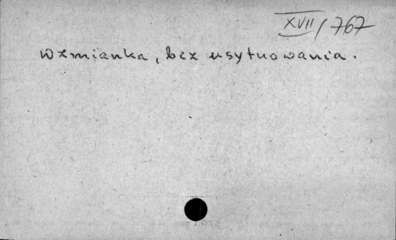 XVII/767
wzmianka, bez usytuowania.